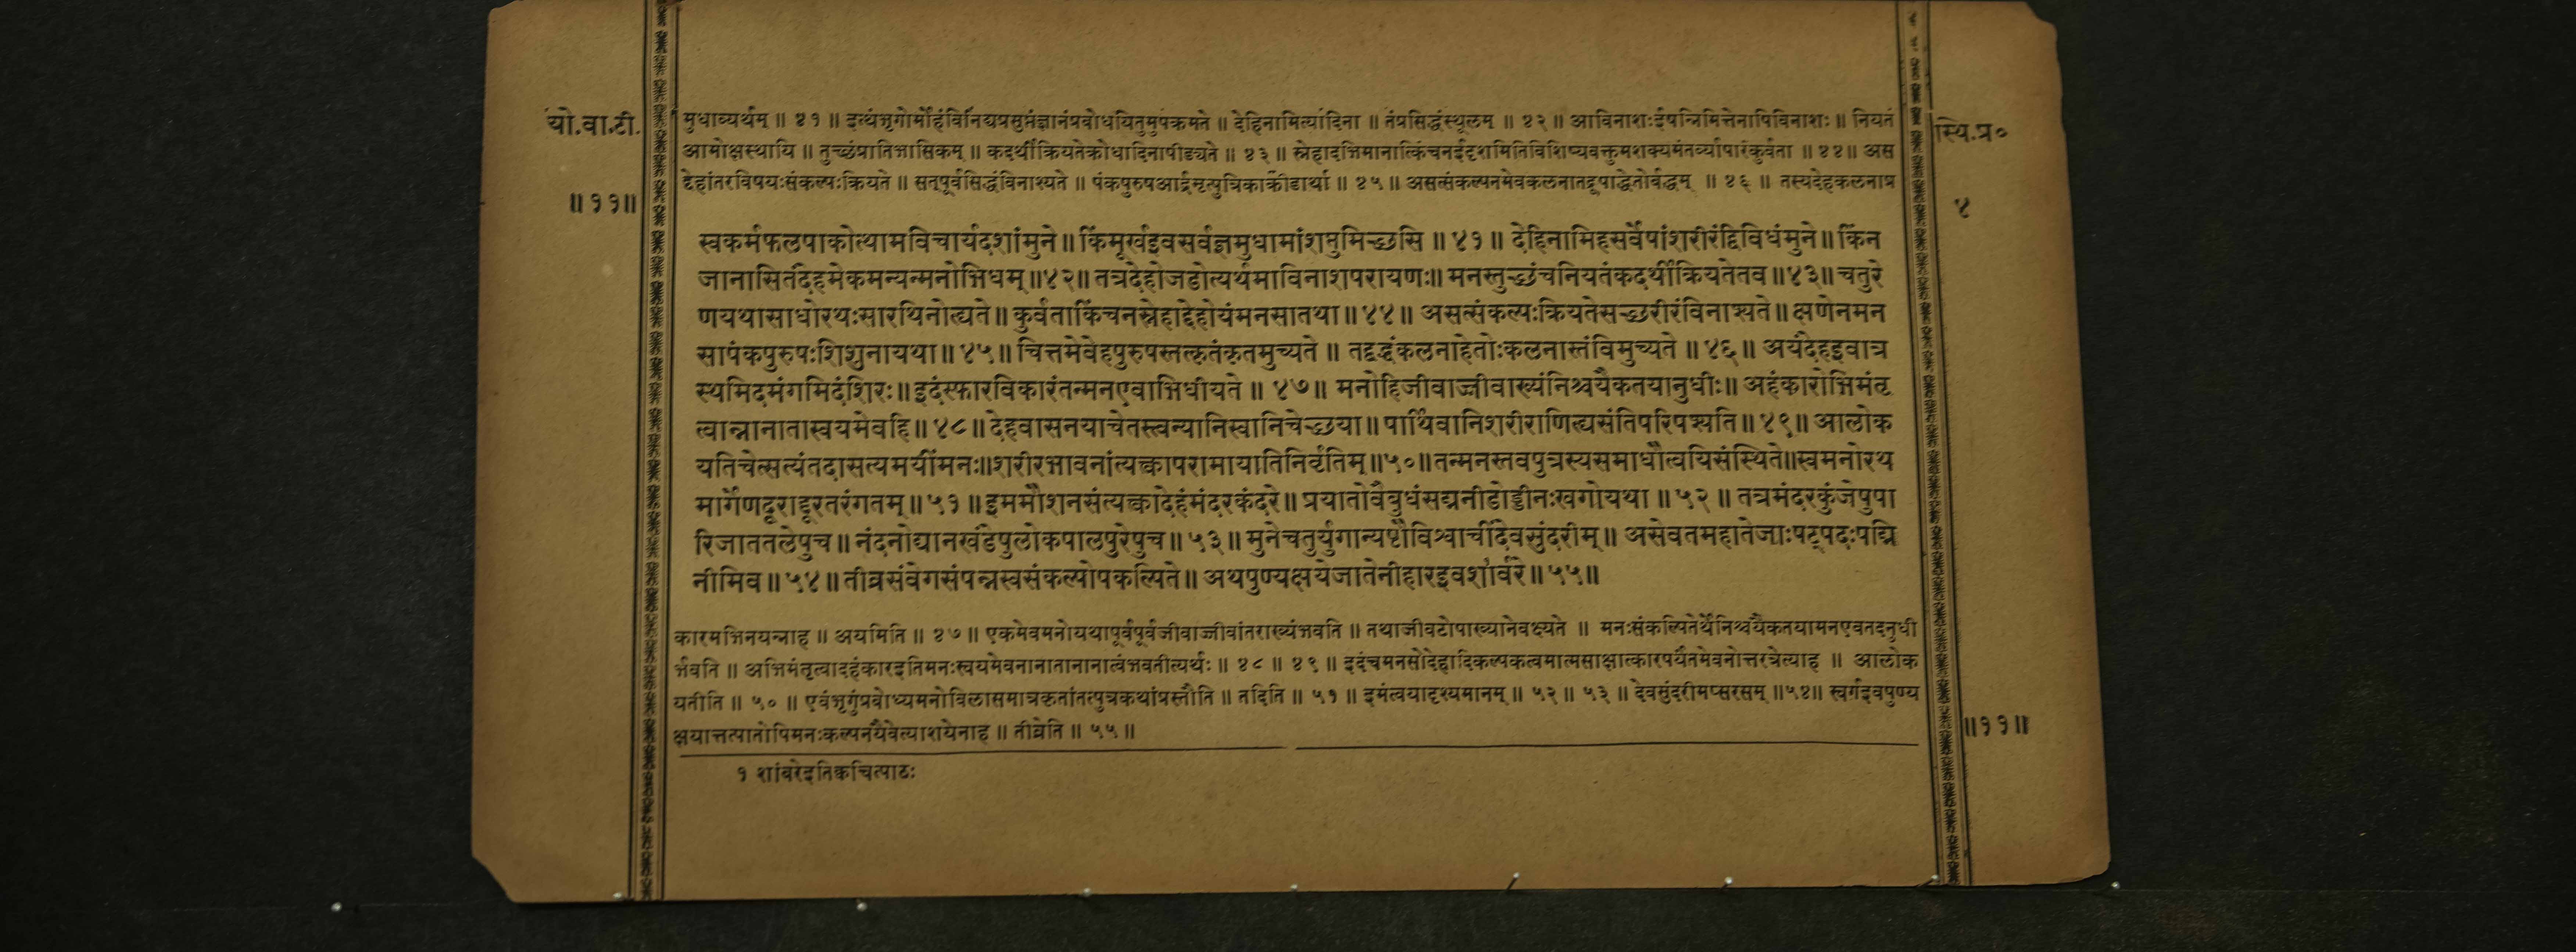 यो.वा.टी.
॥११॥
मुधाव्यर्थम् ॥ ४१ ॥ इत्थंभृगोर्मोहंविनिद्यप्रसुप्तंज्ञानंप्रबोधयितुमुपक्रमते ॥ देहिनामित्यादिना ॥ तंप्रसिद्धंस्थूलम् ॥ ४२ ॥ आविनाशःईषन्निमित्तेनापिविनाशः ॥ नियतं
आमोक्षस्थायि ॥ तुच्छंप्रातिभासिकम् ॥ कदर्थीक्रियतेक्रोधादिनापीड्यते ॥ ४३ ॥ स्नेहादभिमानात्किंचनईदृशमितिविशिष्यवक्तुमशक्यमंतर्व्यापारंकुर्वता ॥ ४४ ॥ अस
द्देहांतरविषयःसंकल्पःक्रियते ॥ सत्पूर्वसिद्धंविनाश्यते ॥ पंकपुरुषआर्द्रमृत्पुत्रिकाक्रीडार्था ॥ ४५ ॥ असत्संकल्पनमेवकलनातद्रूपाद्धेतोर्बद्धम् ॥ ४६ ॥ तस्यदेहकलनाप्र
स्वकर्मफलपाकोत्थामविचार्यदशांमुने ॥ किंमूर्खइवसर्वज्ञमुधामांशप्तुमिच्छसि ॥ ४१ ॥ देहिनामिहसर्वेषांशरीरंद्विविधंमुने ॥ किंन
जानासितंदेहमेकमन्यन्मनोभिधम् ॥४२॥ तत्रदेहोजडोत्यर्थमाविनाशपरायणः॥ मनस्तुच्छंचनियतंकदर्थीक्रियतेतव ॥४३॥ चतुरे
णयथासाधोरथःसारथिनोह्यते ॥ कुर्वताकिंचनस्नेहाद्देहोयंमनसातथा ॥ ४४ ॥ असत्संकल्पःक्रियतेसच्छरीरंविनाश्यते ॥ क्षणेनमन
सापंकपुरुषःशिशुनायथा ॥ ४५ ॥ चित्तमेवेहपुरुषस्तत्कृतंकृतमुच्यते ॥ तद्बद्धंकलनाहेतोःकलनास्तंविमुच्यते ॥ ४६ ॥ अयंदेहइवात्र
स्थमिदमंगमिदंशिरः॥ इदंस्फारविकारंतन्मनएवाभिधीयते ॥ ४७ ॥ मनोहिजीवाज्जीवाख्यंनिश्चयैकतयानुधीः॥ अहंकारोभिमंतृ
त्वान्नानातास्वयमेवहि ॥ ४८ ॥ देहवासनयाचेतस्त्वन्यानिस्वानिचेच्छया ॥ पार्थिवानिशरीराणित्द्यसंतिपरिपश्यति ॥ ४९ ॥ आलोक
यतिचेत्सत्यंतदासत्यमयींमनः॥शरीरभावनांत्यक्त्वापरामायातिनिर्वृतिम् ॥५०॥ तन्मनस्तवपुत्रस्यसमाधौत्वयिसंस्थिते॥स्वमनोरथ
मार्गेणदूराद्दूरतरंगतम् ॥ ५१ ॥ इममौशनसंत्यक्त्वादेहंमंदरकंदरे ॥ प्रयातोवैबुधंसद्मनीडोड्डीनःखगोयथा ॥ ५२ ॥ तत्रमंदरकुंजेषुपा
रिजाततलेषुच ॥ नंदनोद्यानखंडेषुलोकपालपुरेषुच ॥ ५३ ॥ मुनेचतुर्युगान्यष्टौविश्वाचींदेवसुंदरीम् ॥ असेवतमहातेजाःषट्पदःपद्मि
नीमिव ॥ ५४ ॥ तीव्रसंवेगसंपन्नस्वसंकल्पोपकल्पिते ॥ अथपुण्यक्षयेजातेनीहारइवशार्वरे ॥ ५५ ॥
कारमभिनयन्नाह ॥ अयमिति ॥ ४७ ॥ एकमेवमनोयथापूर्वपूर्वजीवाज्जीवांतराख्यंभवति ॥ तथाजीवटोपाख्यानेवक्ष्यते ॥ मनःसंकल्पितेर्थेनिश्चयैकतयामनएवतदनुधी
र्भवति ॥ अभिमंतृत्वादहंकारइतिमनःस्वयमेवनानातानानात्वंभवतीत्यर्थः ॥ ४८ ॥ ४९ ॥ इदंचमनसोदेहादिकल्पकत्वमात्मसाक्षात्कारपर्यंतमेवनोत्तरत्रेत्याह ॥ आलोक
यतीति ॥ ५० ॥ एवंभृगुंप्रबोध्यमनोविलासमात्रकृतांतत्पुत्रकथांप्रस्तौति ॥ तदिति ॥ ५१ ॥ इमंत्वयादृश्यमानम् ॥ ५२ ॥ ५३ ॥ देवसुंदरीमप्सरसम् ॥५४॥ स्वर्गइवपुण्य
क्षयात्तत्पातोपिमनःकल्पनयैवेत्याशयेनाह ॥ तीव्रेति ॥ ५५ ॥
१ शांबरेइतिक्वचित्पाठः
स्थि.प्र०
४
॥११॥